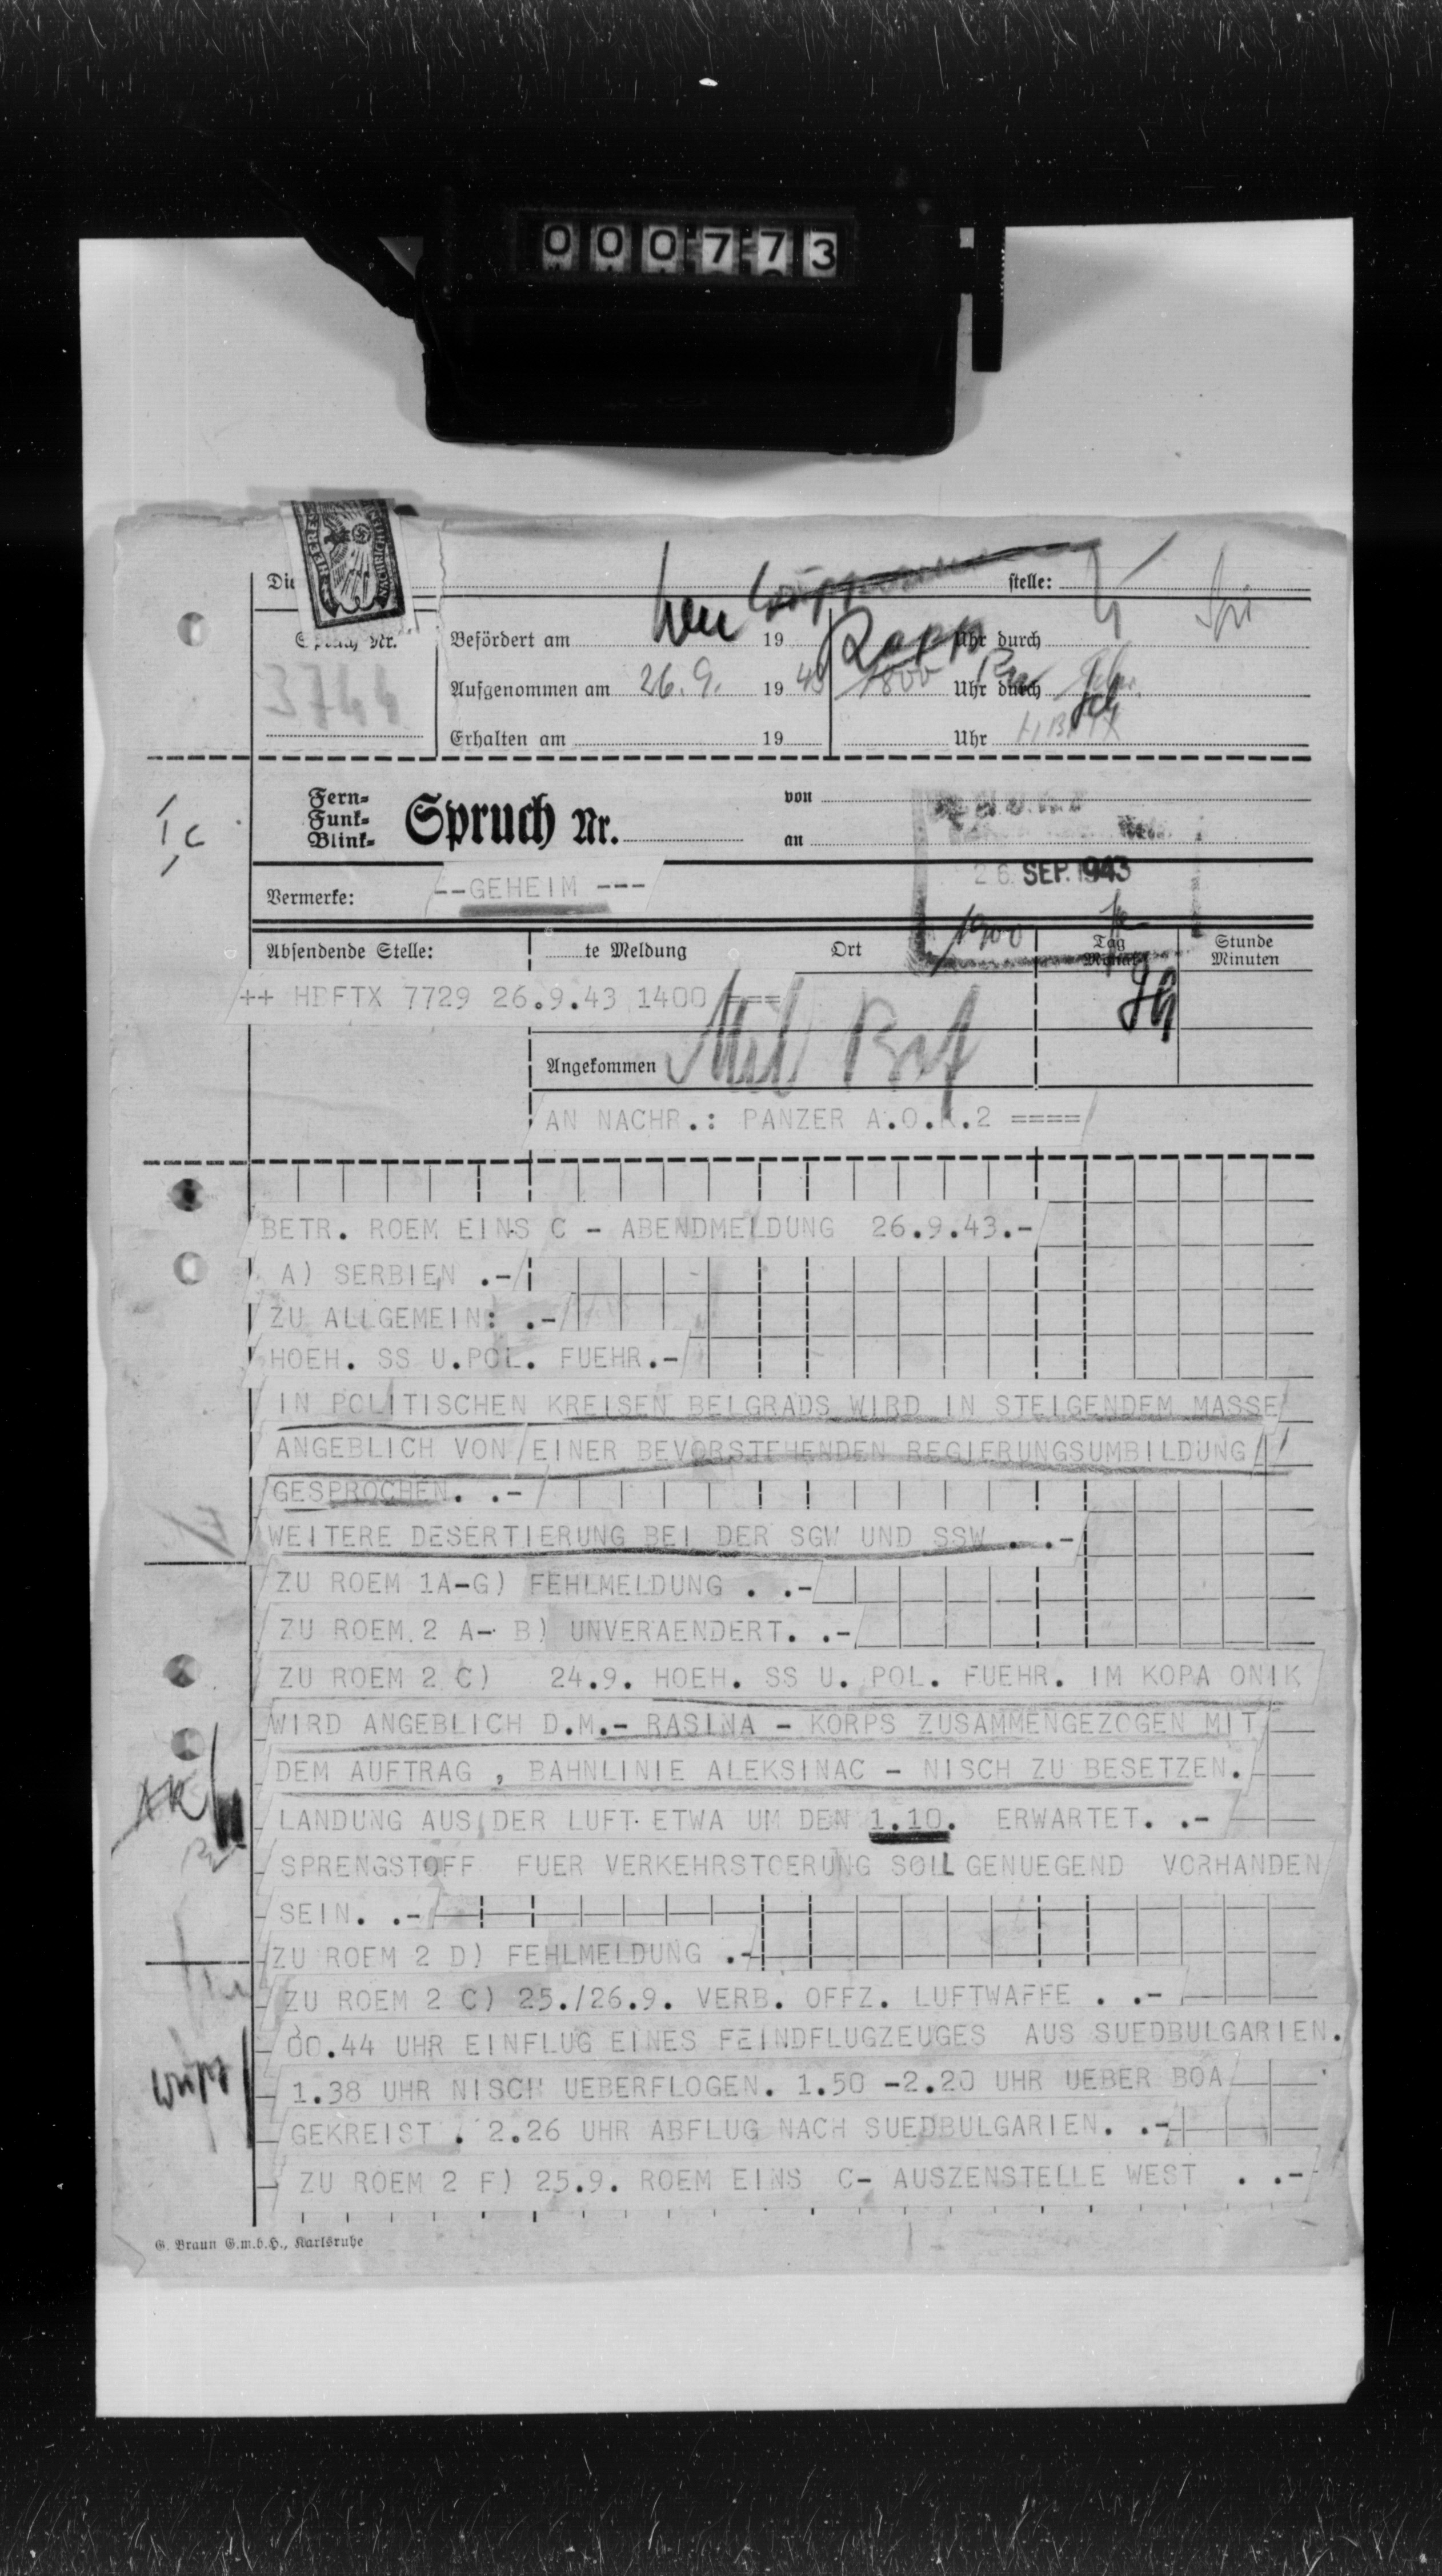 000773
Die stelle:
Spruch Nr. Befördert am 19 Uhr durch
3744 Aufgenommen am 26.9. 19 43 1800 Uhr durch
Erhalten am 19 Uhr
Fern-
Funk-
Blink-
Spruch Nr.
von
an
I c
26. SEP. 1943
Vermerke: --GEHEIM ---
1900
Absendende Stelle: te Meldung Ort Tag Monat Stunde Minuten
++ HBFTX 7729 26.9.43 1400 ===
Angekommen
AN NACHR.: PANZER A.O.K.2 ====
BETR. ROEM EINS C - ABENDMELDUNG 26.9.43.-
A) SERBIEN .-
ZU ALLGEMEIN: .-
HOEH. SS U.POL. FUEHR.-
IN POLITISCHEN KREISEN BELGRADS WIRD IN STEIGENDEM MASSE
ANGEBLICH VON EINER BEVORSTEHENDEN REGIERUNGSUMBILDUNG
GESPROCHEN. .-
WEITERE DESERTIERUNG BEI DER SGW UND SSW . .-
ZU ROEM 1A-G) FEHLMELDUNG . .-
ZU ROEM 2 A- B) UNVERAENDERT. .-
ZU ROEM 2 C) 24.9. HOEH. SS U. POL. FUEHR. IM KOPA ONIK
WIRD ANGEBLICH D.M.- RASINA - KORPS ZUSAMMENGEZOGEN MIT
DEM AUFTRAG , BAHNLINIE ALEKSINAC - NISCH ZU BESETZEN.
LANDUNG AUS DER LUFT ETWA UM DEN 1.10. ERWARTET. .-
SPRENGSTOFF FUER VERKEHRSTOERUNG SOLL GENUEGEND VORHANDEN
SEIN. .-
ZU ROEM 2 D) FEHLMELDUNG .-
ZU ROEM 2 C) 25./26.9. VERB. OFFZ. LUFTWAFFE . .-
00.44 UHR EINFLUG EINES FEINDFLUGZEUGES AUS SUEDBULGARIEN.
1.38 UHR NISCH UEBERFLOGEN. 1.50 -2.20 UHR UEBER BOA
GEKREIST . 2.26 UHR ABFLUG NACH SUEDBULGARIEN. .-
ZU ROEM 2 F) 25.9. ROEM EINS C- AUSZENSTELLE WEST . .-
G. Braun G.m.b.H., Karlsruhe